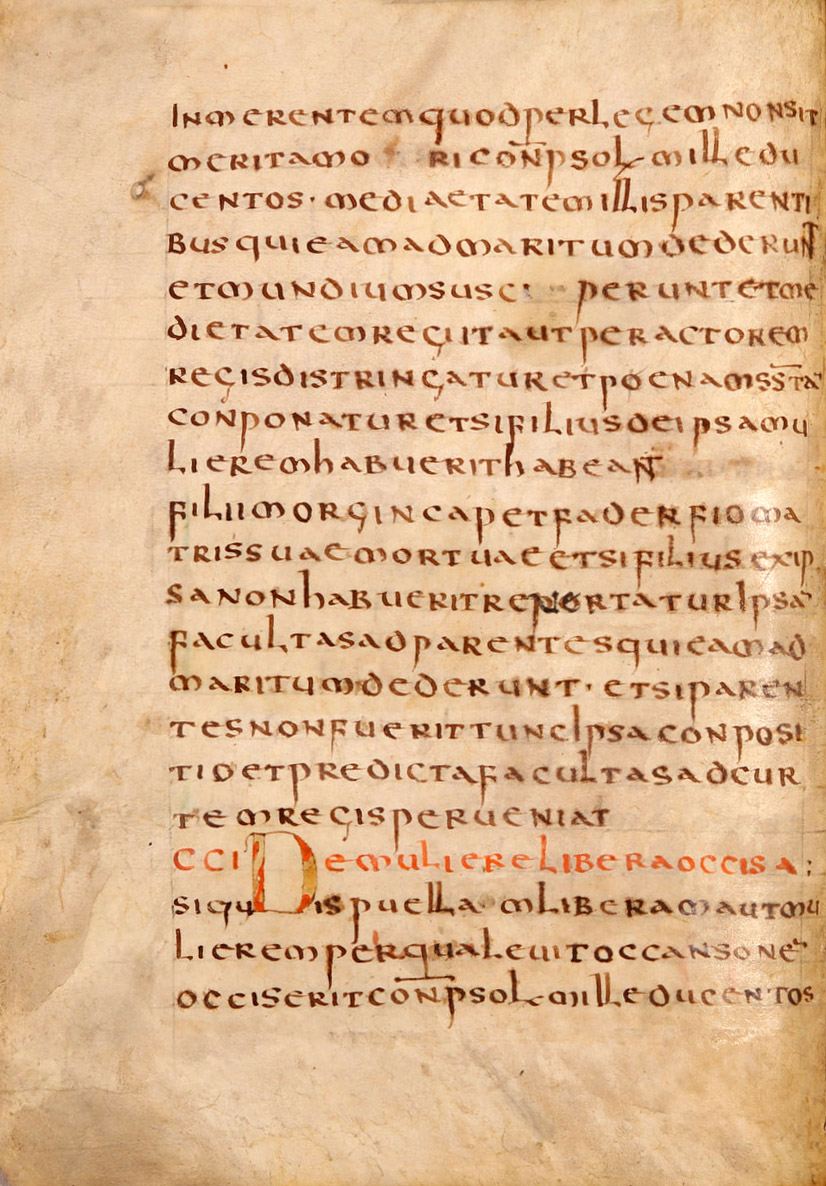 INmerentem quod per legem nonsit
merita mori conp sol mille du
centos · mediaetatem illis parenti
bus qui eam ad maritum dederunt
et mundium susc: perunt et me
dietatem regi ita ut per actorem
regis distringatur et poena mssta
conponatur et si filius de ipsa mu
lierem habuerit habeant
filii morgincap et faderfio ma
tris suae mortuae et si filius ex ip
sa non habuerit reuertatur ipsa
facultas ad parentes qui eam ad
maritum dederunt · et si paren
tes non fuerit tunc ipsa conposi
tio et predicta facultas ad cur
tem regis perueniat
CCI De muliere libera occisa :
Si quis puella mliberam aut mu
lierem per qualeuit occansone
occiserit conp sol mille ducentos